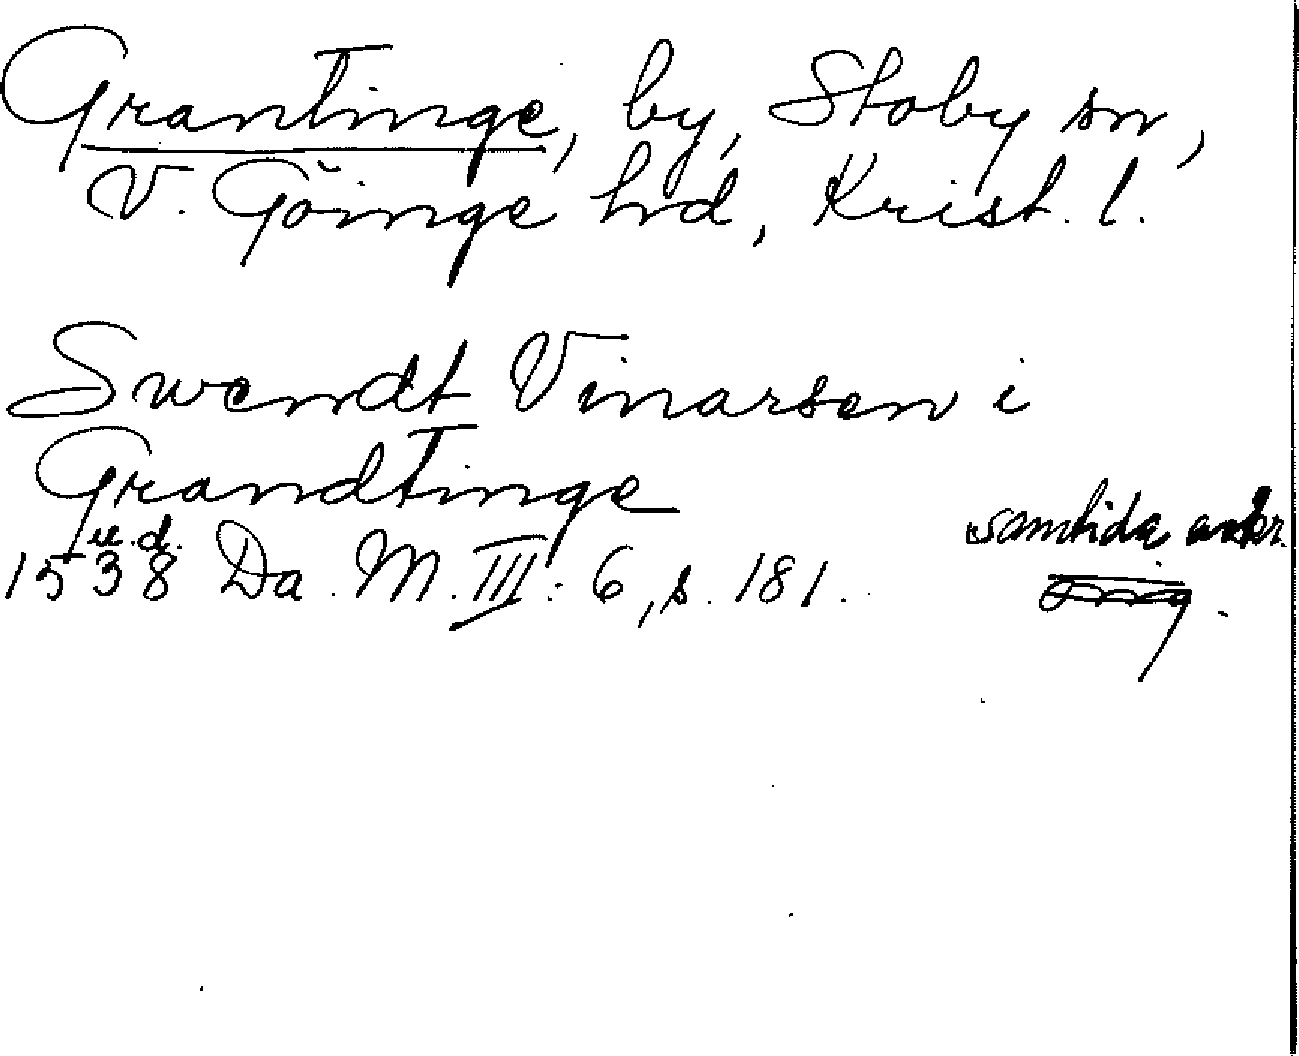 Grantinge, by, Stoby sn,
V. Göinge hd, Krist. l.
Swendt Vinarsen i
Grandtinge
u. d.
1538 Da. M. III: 6, s. 181.
samtida avskr.